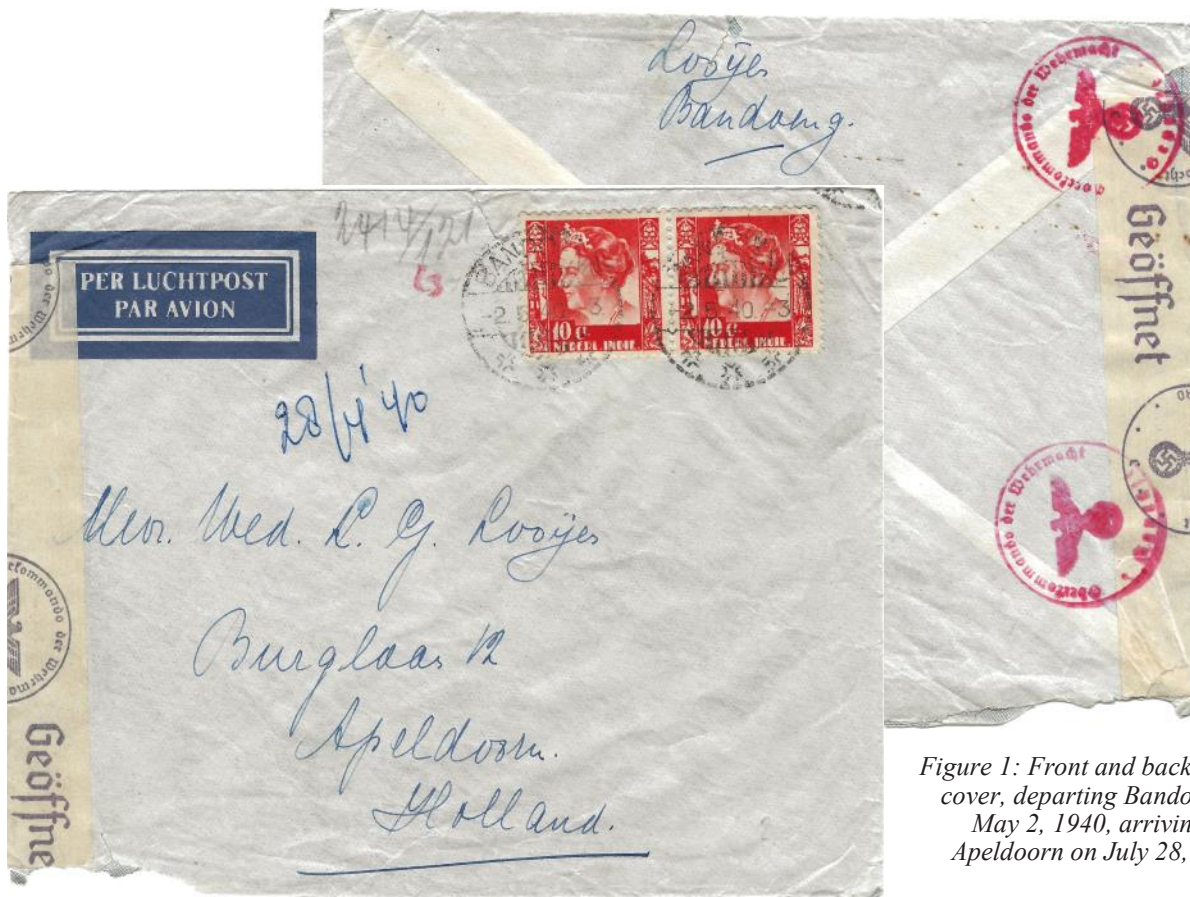 Looÿes
Bandoeng.
Oberkommando der Wehrmacht
Geöffnet
Oberkommando der Wehrmacht
PER LUCHTPOST
PAR AVION
2414/121
10 C.
NEDERL. INDIE
10 C.
NEDERL. INDIE
-2.5.40.
28/4 '40
Mevr. Wed. L. G. Looÿes
Burglaan 12
Apeldoorn.
Holland.
der Wehrm
rkommando der Wehrma
Geöffne
Figure 1: Front and back
cover, departing Bando
May 2, 1940, arrivin
Apeldoorn on July 28,